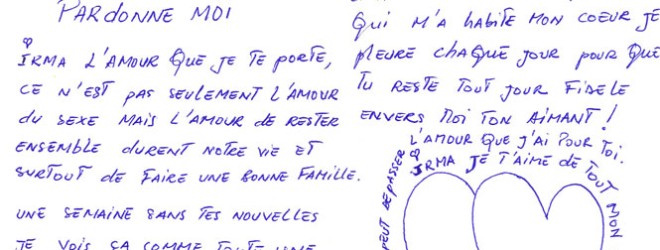 PARDONNE MOI
IRMA L'AMOUR QUE JE TE PORTE,
CE N'EST PAS SEULEMENT L'AMOUR
DU SEXE MAIS L'AMOUR DE RESTER
ENSEMBLE DURENT NOTRE VIE ET
SURTOUT DE FAIRE UNE BONNE FAMILLE.
UNE SEMAINE SANS TES NOUVELLES
JE VOIS ÇA COMME TOUTE UNE
QUI M'A HABITE MON COEUR JE
PLEURE CHAQUE JOUR POUR QUE
TU RESTE TOUT JOUR FIDELE
ENVERS MOI TON AIMANT !
L'AMOUR QUE J'AI POUR TOI.
IRMA JE T'AIME DE TOUT MON
PEUT DEPASSER